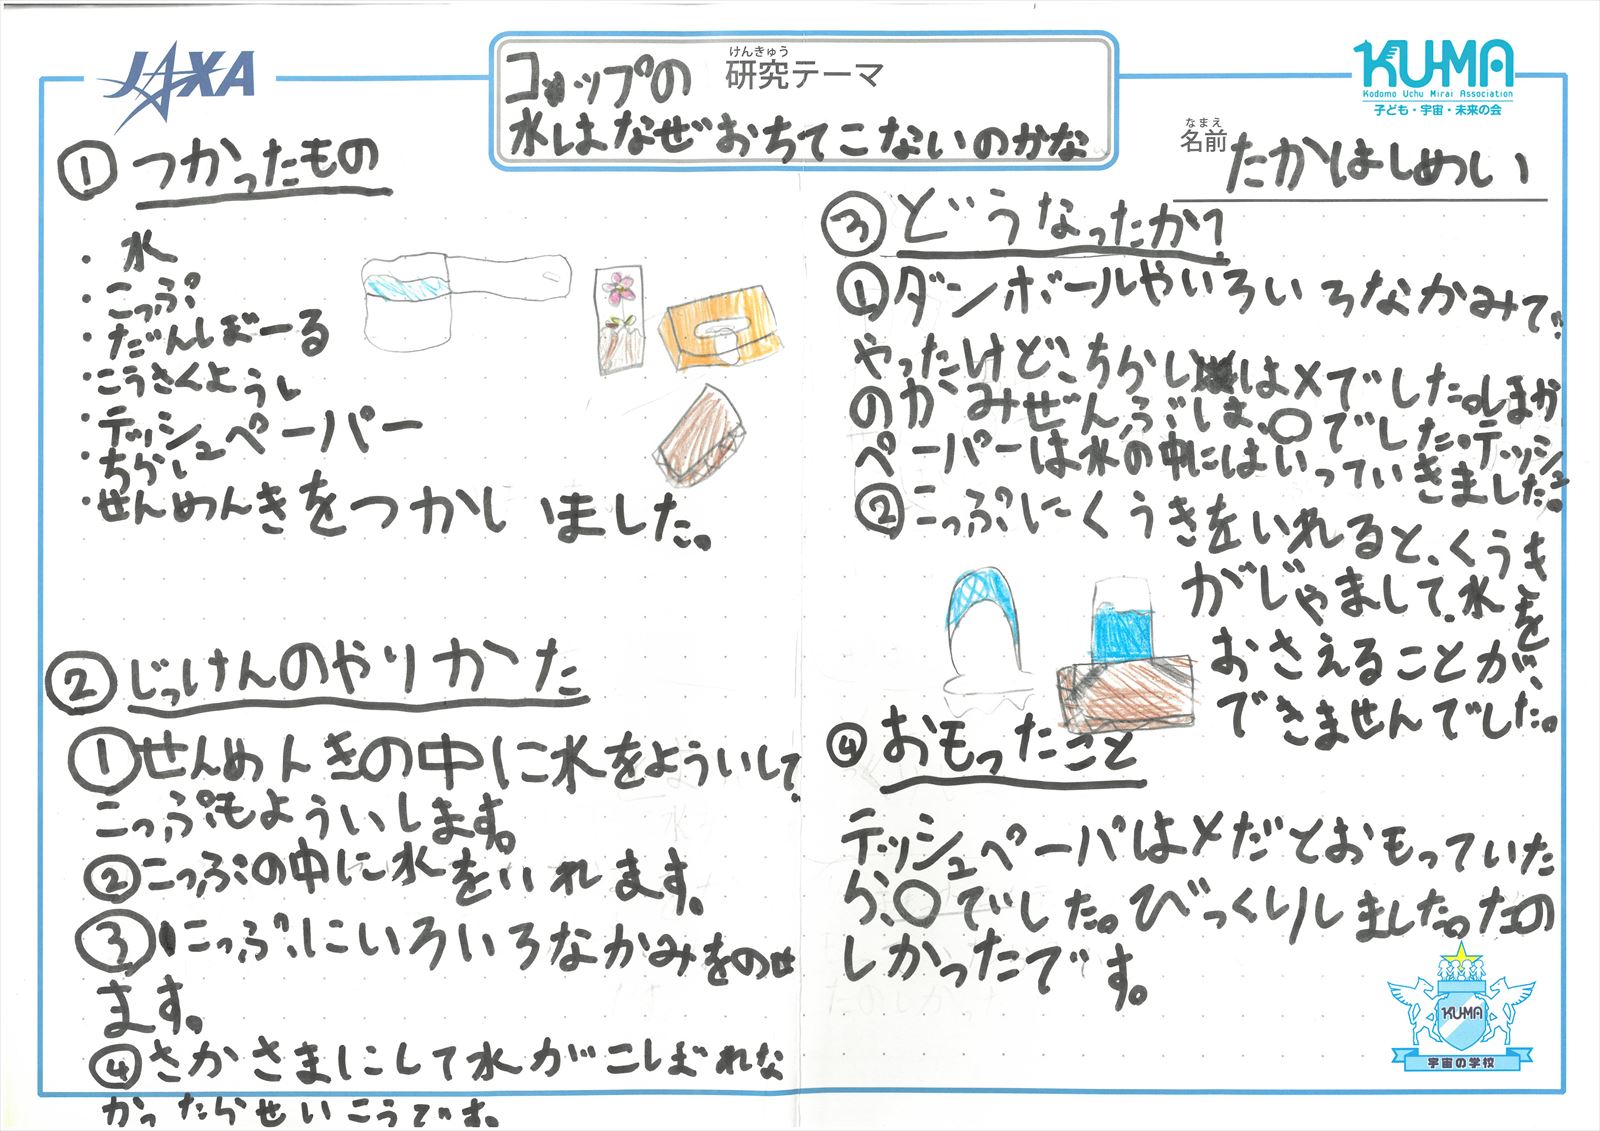 JAXA
けんきゅう
研究テーマ
コップの
水はなぜおちてこないのかな
KU-MA
Kodomo Uchu Mirai Association
子ども・宇宙・未来の会
なまえ
名前
たかはしめい
① つかったもの
・水
・こっぷ
・だんぼーる
・こうさくようし
・テッシュペーパー
・ちらし
・せんめんきをつかいました。
② じっけんのやりかた
①せんめんきの中に水をよういして
こっぷもよういします。
②こっぷの中に水をいれます。
③こっぷにいろいろなかみをのせ
ます。
④さかさまにして水がこぼれな
かったらせいこうです。
③ どうなったか?
①ダンボールやいろいろなかみで
やったけど、ちらしは×でした。ほか
のがみぜんぶは、○でした。テッシュ
ペーパーは水の中にはいっていきました。
②こっぷにくうきをいれると、くうき
がじゃまして、水を
おさえることが、
できませんでした。
④ おもったこと
テッシュペーパは×だとおもっていた
ら、○でした。びっくりしました。たの
しかったです。
KU-MA
宇宙の学校